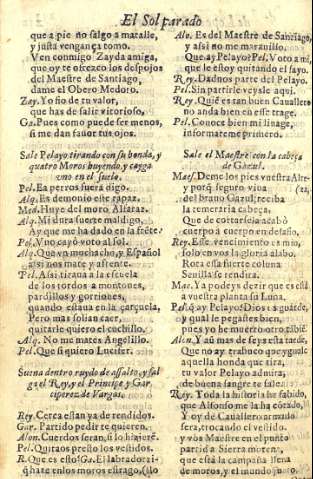 El Sol parado
que a pie no salgo a matalle,
y justa vengança tomo.
Ven conmigo Zayda amiga,
que oy te ofrezco los despojos
del Maestre de Santiago,
dame el Obero Medoro.
Zay. Yo fio de tu valor,
que has de salir vitorioso.
Ga. Pues como puede ser menos,
si me dan fauor tus ojos.
Sale Pelayo tirando con su honda, y
quatro Moros huyendo, y cayga
vno en el suelo.
Pel. Ea perros fuera digo.
Alq. Es demonio este rapaz.
Med. Huye del moro Alfaraz.
Alq. Mi dura suerte maldigo,
Ay que me ha dado en la frẽte.
Pel. Vno cayò voto al sol.
Alq. Que vn muchacho, y Español
assi nos mate y afrente.
Pel. Assi tiraua a la escuela
de los tordos a montones,
pardillos y gorriones,
quando estaua en la çarçuela,
Pero mas so
quitarle quiero el cuchillo.
Alq. No me mates Angelillo.
Pel. Que si quiero Lucifer.
Suena dentro ruydo de assalto, y sal
ga el Rey, y el Principe y Gar
ciperez de Vargas.
Rey. Cerca estan ya de rendidos.
Gar. Partido pedirte quieren.
Alon. Cuerdos seran, si lo hizieré.
Pel. Quitaos presto los vestidos.
R. Que es esto? Ga. El labrador
q̃ hate en los moros estrago,
Alo. Es del Maestre de Santiago,
y assi no me marauillo.
Que ay Pelayo? Pel. Voto a mi,
que le estoy quitando el sayo.
Rey. Dadnos parte del Pelayo.
Pel. Sin partirle veysle aqui.
Rey. Què es tan buen Cauallero
no anda bien en este trage.
Pel. Conoce bien mi linage,
informareme primero.
Sale el Maestre con la cabeça
de Gazul.
Maes. Deme los pies vuestra Alte-
y porq̃ seguro viua (za,
del brauo Gazul, reciba
la temeraria cabeça,
Que de cortarsela acabò
cuerpo a cuerpo en desafio,
Rey. Este vencimiento es mio,
solo en vos la gloria alabo.
Rota esta fuerte coluna
Seuilla se rendira.
Mae. Ya podeys dezir que està
a vuestra planta su Luna.
Pel. q̃ ay Pelayo? Dios os guarde,
y qual le pegastes bien,
pues yo he muerto otro tãbiẽ.
Alon. Y aũ mas de seys esta tarde,
Que no ay trabuco que ygunle
aquella honda que tira,
tu valor Pelayo admira,
de buena sangre te sale.
Rey. Toda la historia he sabido,
que Alfonso me la ha cõtado,
Y oy de Cauallero armado
sera, trocando el vestido,
y vos Maestre en el punto
partid a Sierra morena,
que està la campaña llena
de moros, y el mundo junto.